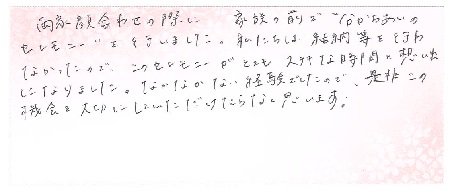 両家顔合わせの際に、家族の前で"なかおあいの
セレモニー"を行いました。私たちは結納等を行わ
なかったので、このセレモニーがとてもステキな時間と想い出
になりました。なかなかない経験でしたので、是非この
機会を大切にしていただけたらなと思います。